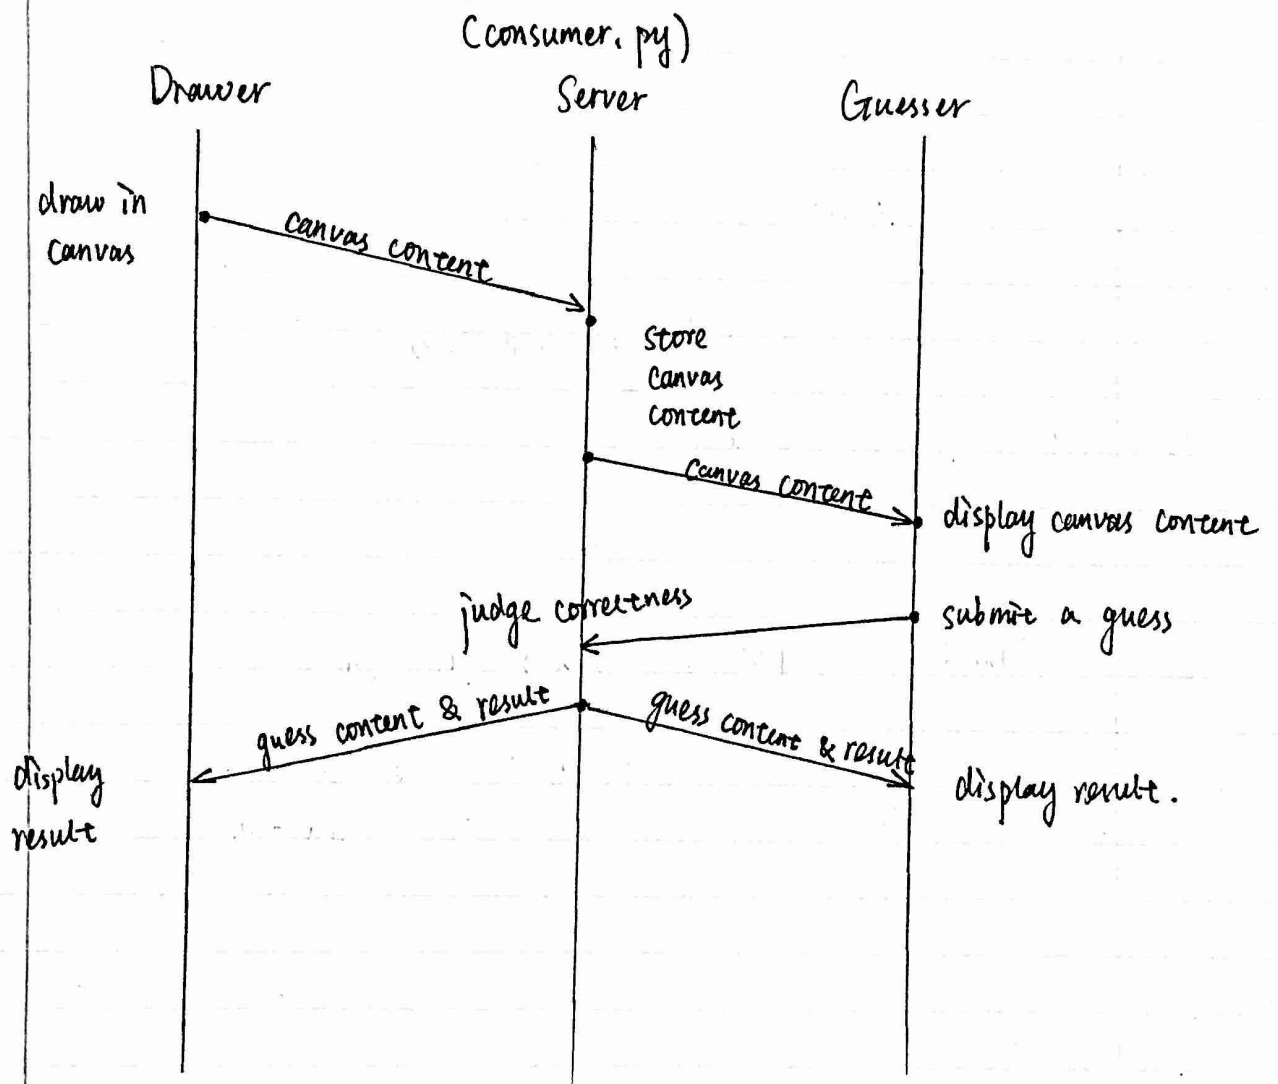 (consumer.py)
Drawer
Server
Guesser
draw in
canvas
canvas content
store
canvas
content
canvas content
display canvas content
judge correctness
submit a guess
guess content & result
guess content & result
display
result
display result.